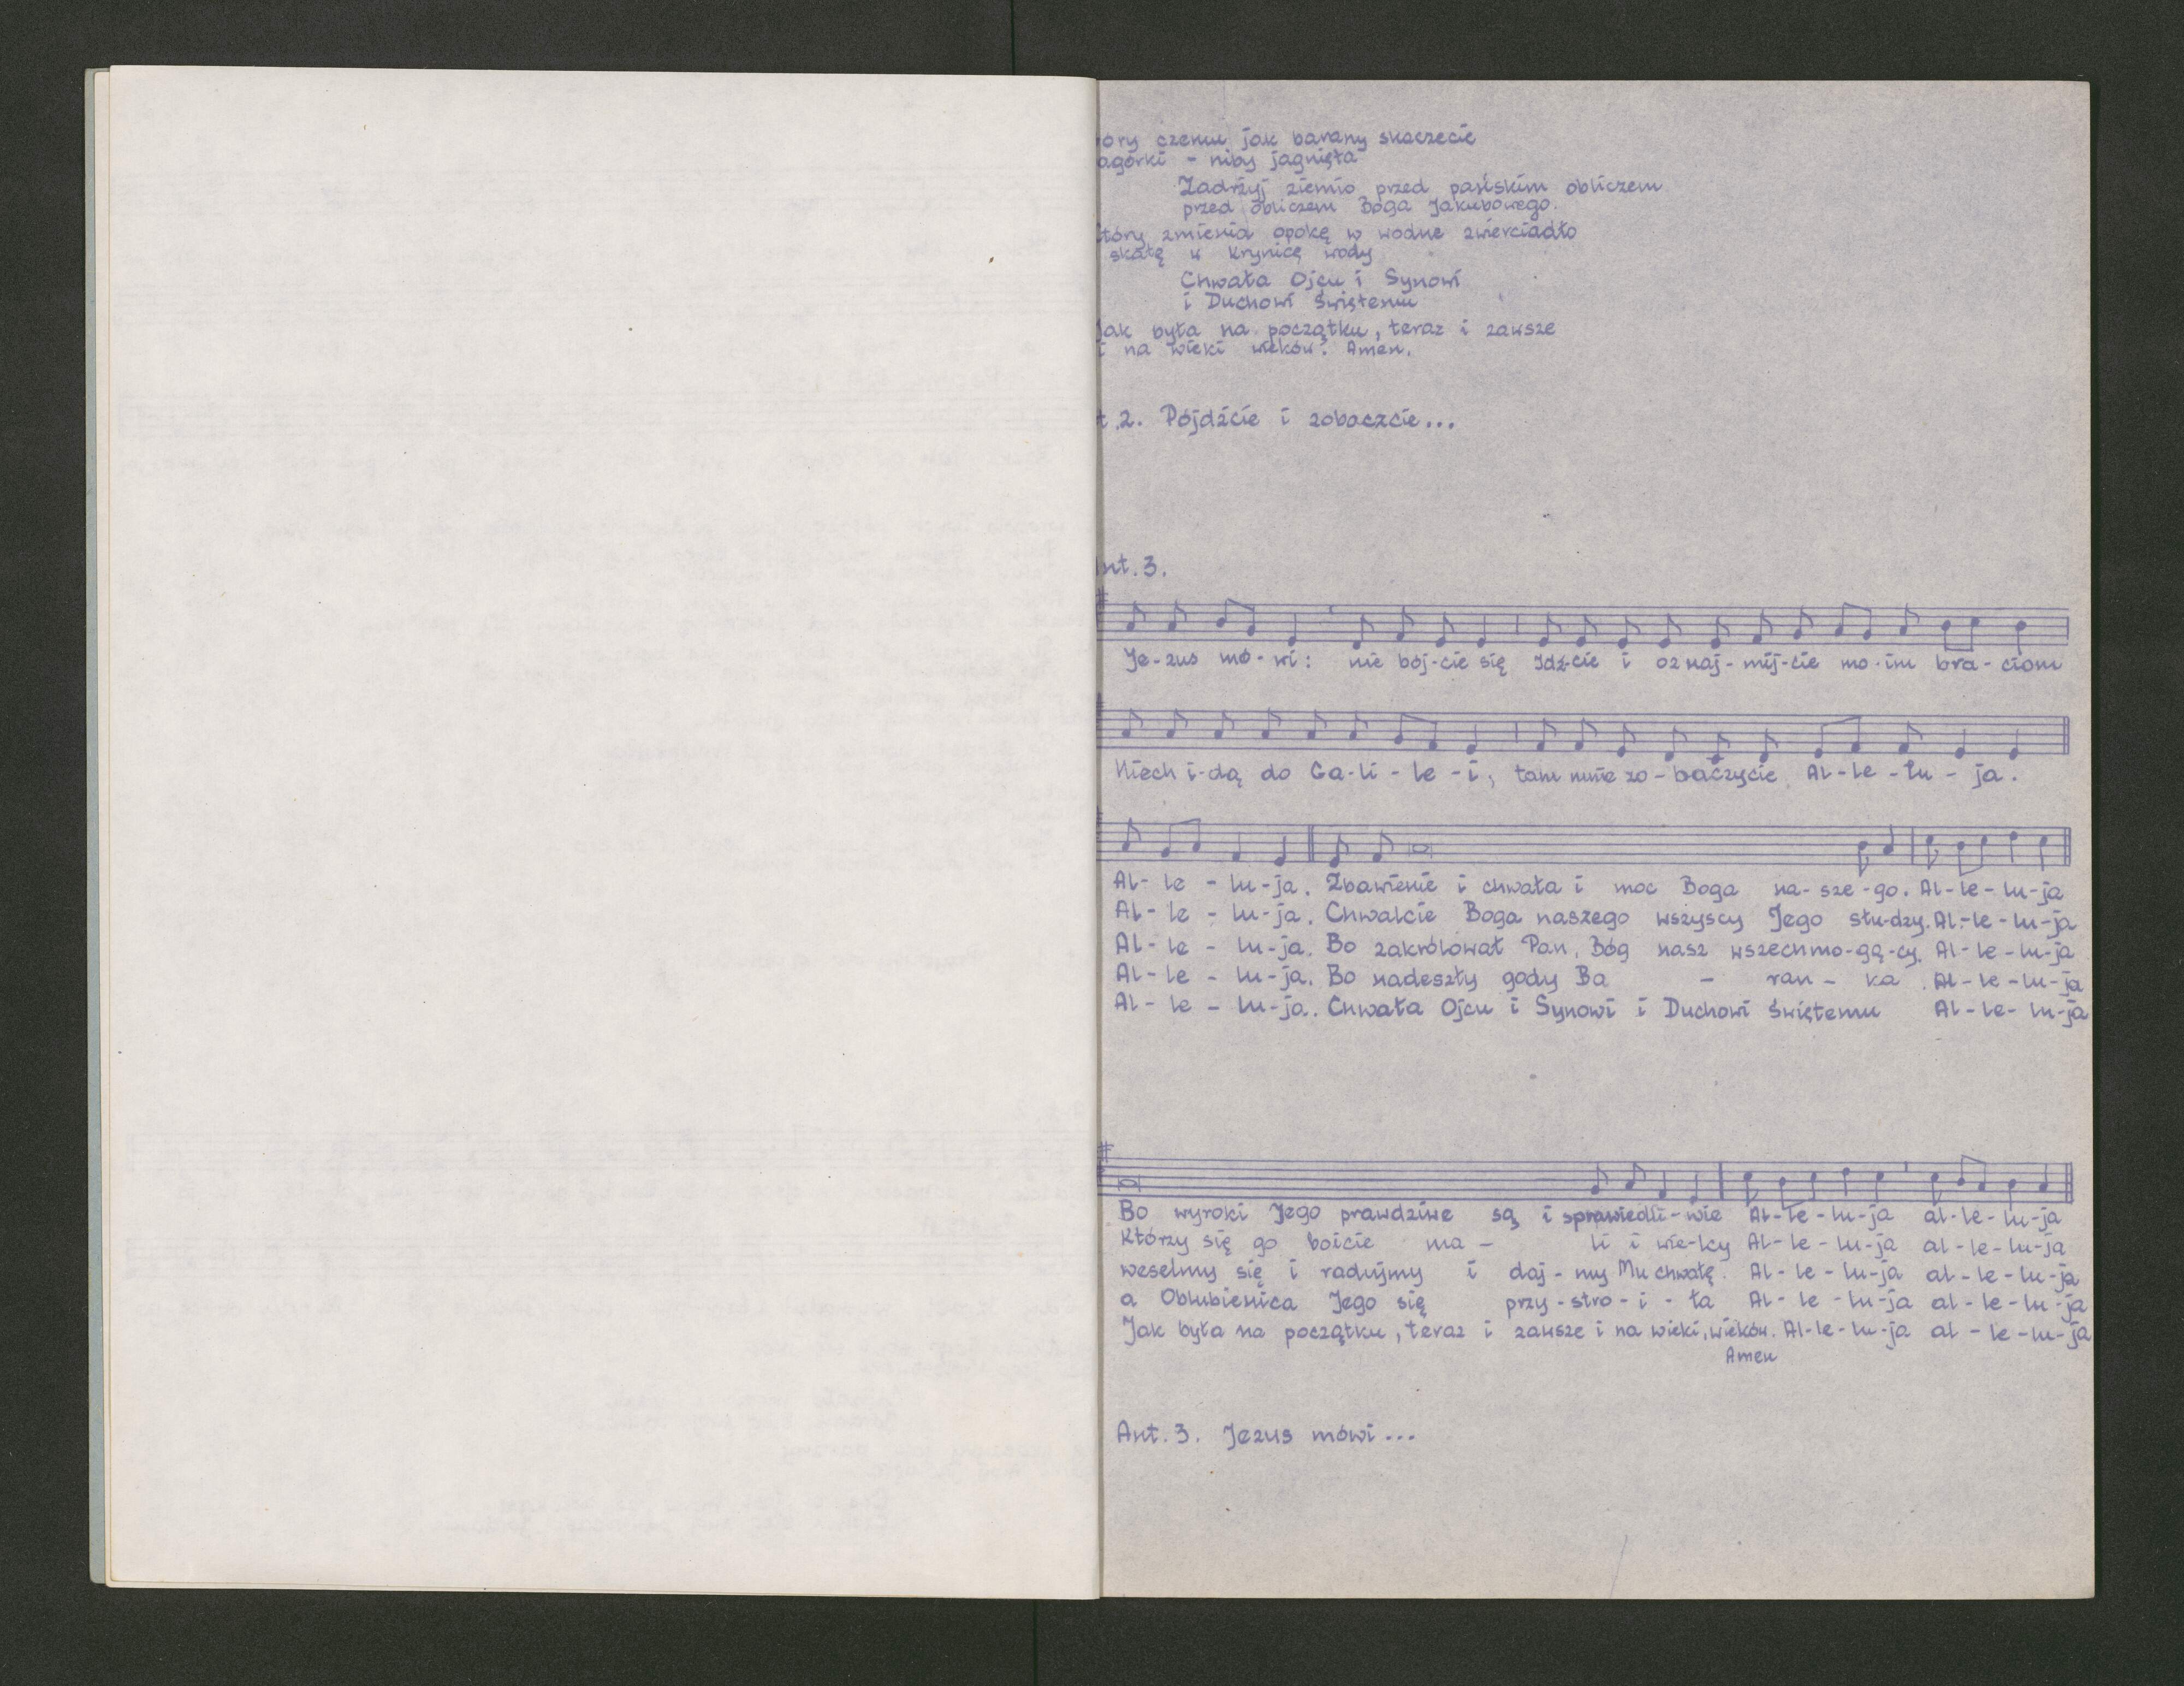 óry czemu jak barany skaczecie
agórki - niby jagnięta
Zadrżyj ziemio przed pańskim obliczem
przed obliczem Boga Jakubowego.
tóry zmienia opokę w wodne zwierciadło
skałę w krynicę wody
Chwała Ojcu i Synowi
i Duchowi Świętemu
Jak była na początku, teraz i zawsze
i na wieki wieków. Amen.
t.2. Pójdźcie i zobaczcie...
nt. 3.
Je-zus mó-wi: nie bój-cie się Idź-cie i oznaj-mij-cie mo-im bra-ciom
Niech i-dą do Ga-li-le-i, tam mnie zo-baczycie Al-le-lu-ja.
Al-le-lu-ja. Zbawienie i chwała i moc Boga na-sze-go. Al-le-lu-ja
Al-le-lu-ja. Chwalcie Boga naszego wszyscy Jego słu-dzy. Al-le-lu-ja
Al-le-lu-ja. Bo zakrólował Pan, Bóg nasz wszechmo-gą-cy. Al-le-lu-ja
Al-le-lu-ja. Bo nadeszły gody Ba - ran - ka. Al-le-lu-ja
Al-le-lu-ja. Chwała Ojcu i Synowi i Duchowi Świętemu Al-le-lu-ja
Bo wyroki Jego prawdziwe są i sprawiedli-wie Al-le-lu-ja al-le-lu-ja
Którzy się go boicie ma - li i wie-lcy Al-le-lu-ja al-le-lu-ja
weselmy się i radujmy i daj-my Mu chwałę. Al-le-lu-ja al-le-lu-ja
a Oblubienica Jego się przy-stro-i-ła Al-le-lu-ja al-le-lu-ja
Jak była na początku, teraz i zawsze i na wieki, wieków. Al-le-lu-ja al-le-lu-ja
Amen
Ant. 3. Jezus mówi...